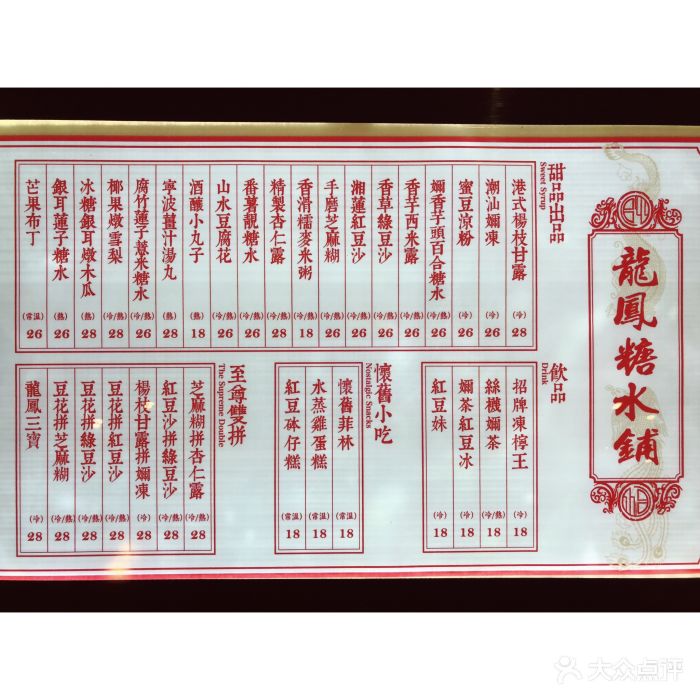 龍鳳糖水鋪
甜品出品
Sweet Syrup
港式楊枝甘露 (冷) 28
潮汕嬭凍 (冷) 26
蜜豆涼粉 (冷) 26
嬭香芋頭百合糖水 (冷/熱) 26
香芋西米露 (冷/熱) 26
香草綠豆沙 (冷/熱) 26
湘蓮紅豆沙 (冷/熱) 26
手磨芝麻糊 (冷/熱) 26
香滑糯麥米粥 (冷/熱) 18
精製杏仁露 (冷/熱) 28
番薯靚糖水 (冷/熱) 26
山水豆腐花 (冷/熱) 26
酒釀小丸子 (熱) 18
寧波薑汁湯丸 (熱) 28
腐竹蓮子薏米糖水 (冷/熱) 26
椰果燉雪梨 (冷/熱) 28
冰糖銀耳燉木瓜 (熱) 28
銀耳蓮子糖水 (熱) 26
芒果布丁 (常溫) 26
飲品
Drink
招牌凍檸王 (冷) 18
絲襪嬭茶 (冷/熱) 18
嬭茶紅豆冰 (冷) 18
紅豆妹 (冷) 18
懷舊小吃
Nostalgic Snacks
懷舊菲林 (常溫) 18
水蒸雞蛋糕 (常溫) 18
紅豆砵仔糕 (常溫) 18
至尊雙拼
The Supreme Double
芝麻糊拼杏仁露 (冷/熱) 28
紅豆沙拼綠豆沙 (冷/熱) 28
楊枝甘露拼嬭凍 (冷) 28
豆花拼紅豆沙 (冷/熱) 28
豆花拼綠豆沙 (冷/熱) 28
豆花拼芝麻糊 (冷/熱) 28
龍鳳三寶 (冷) 28
大众点评